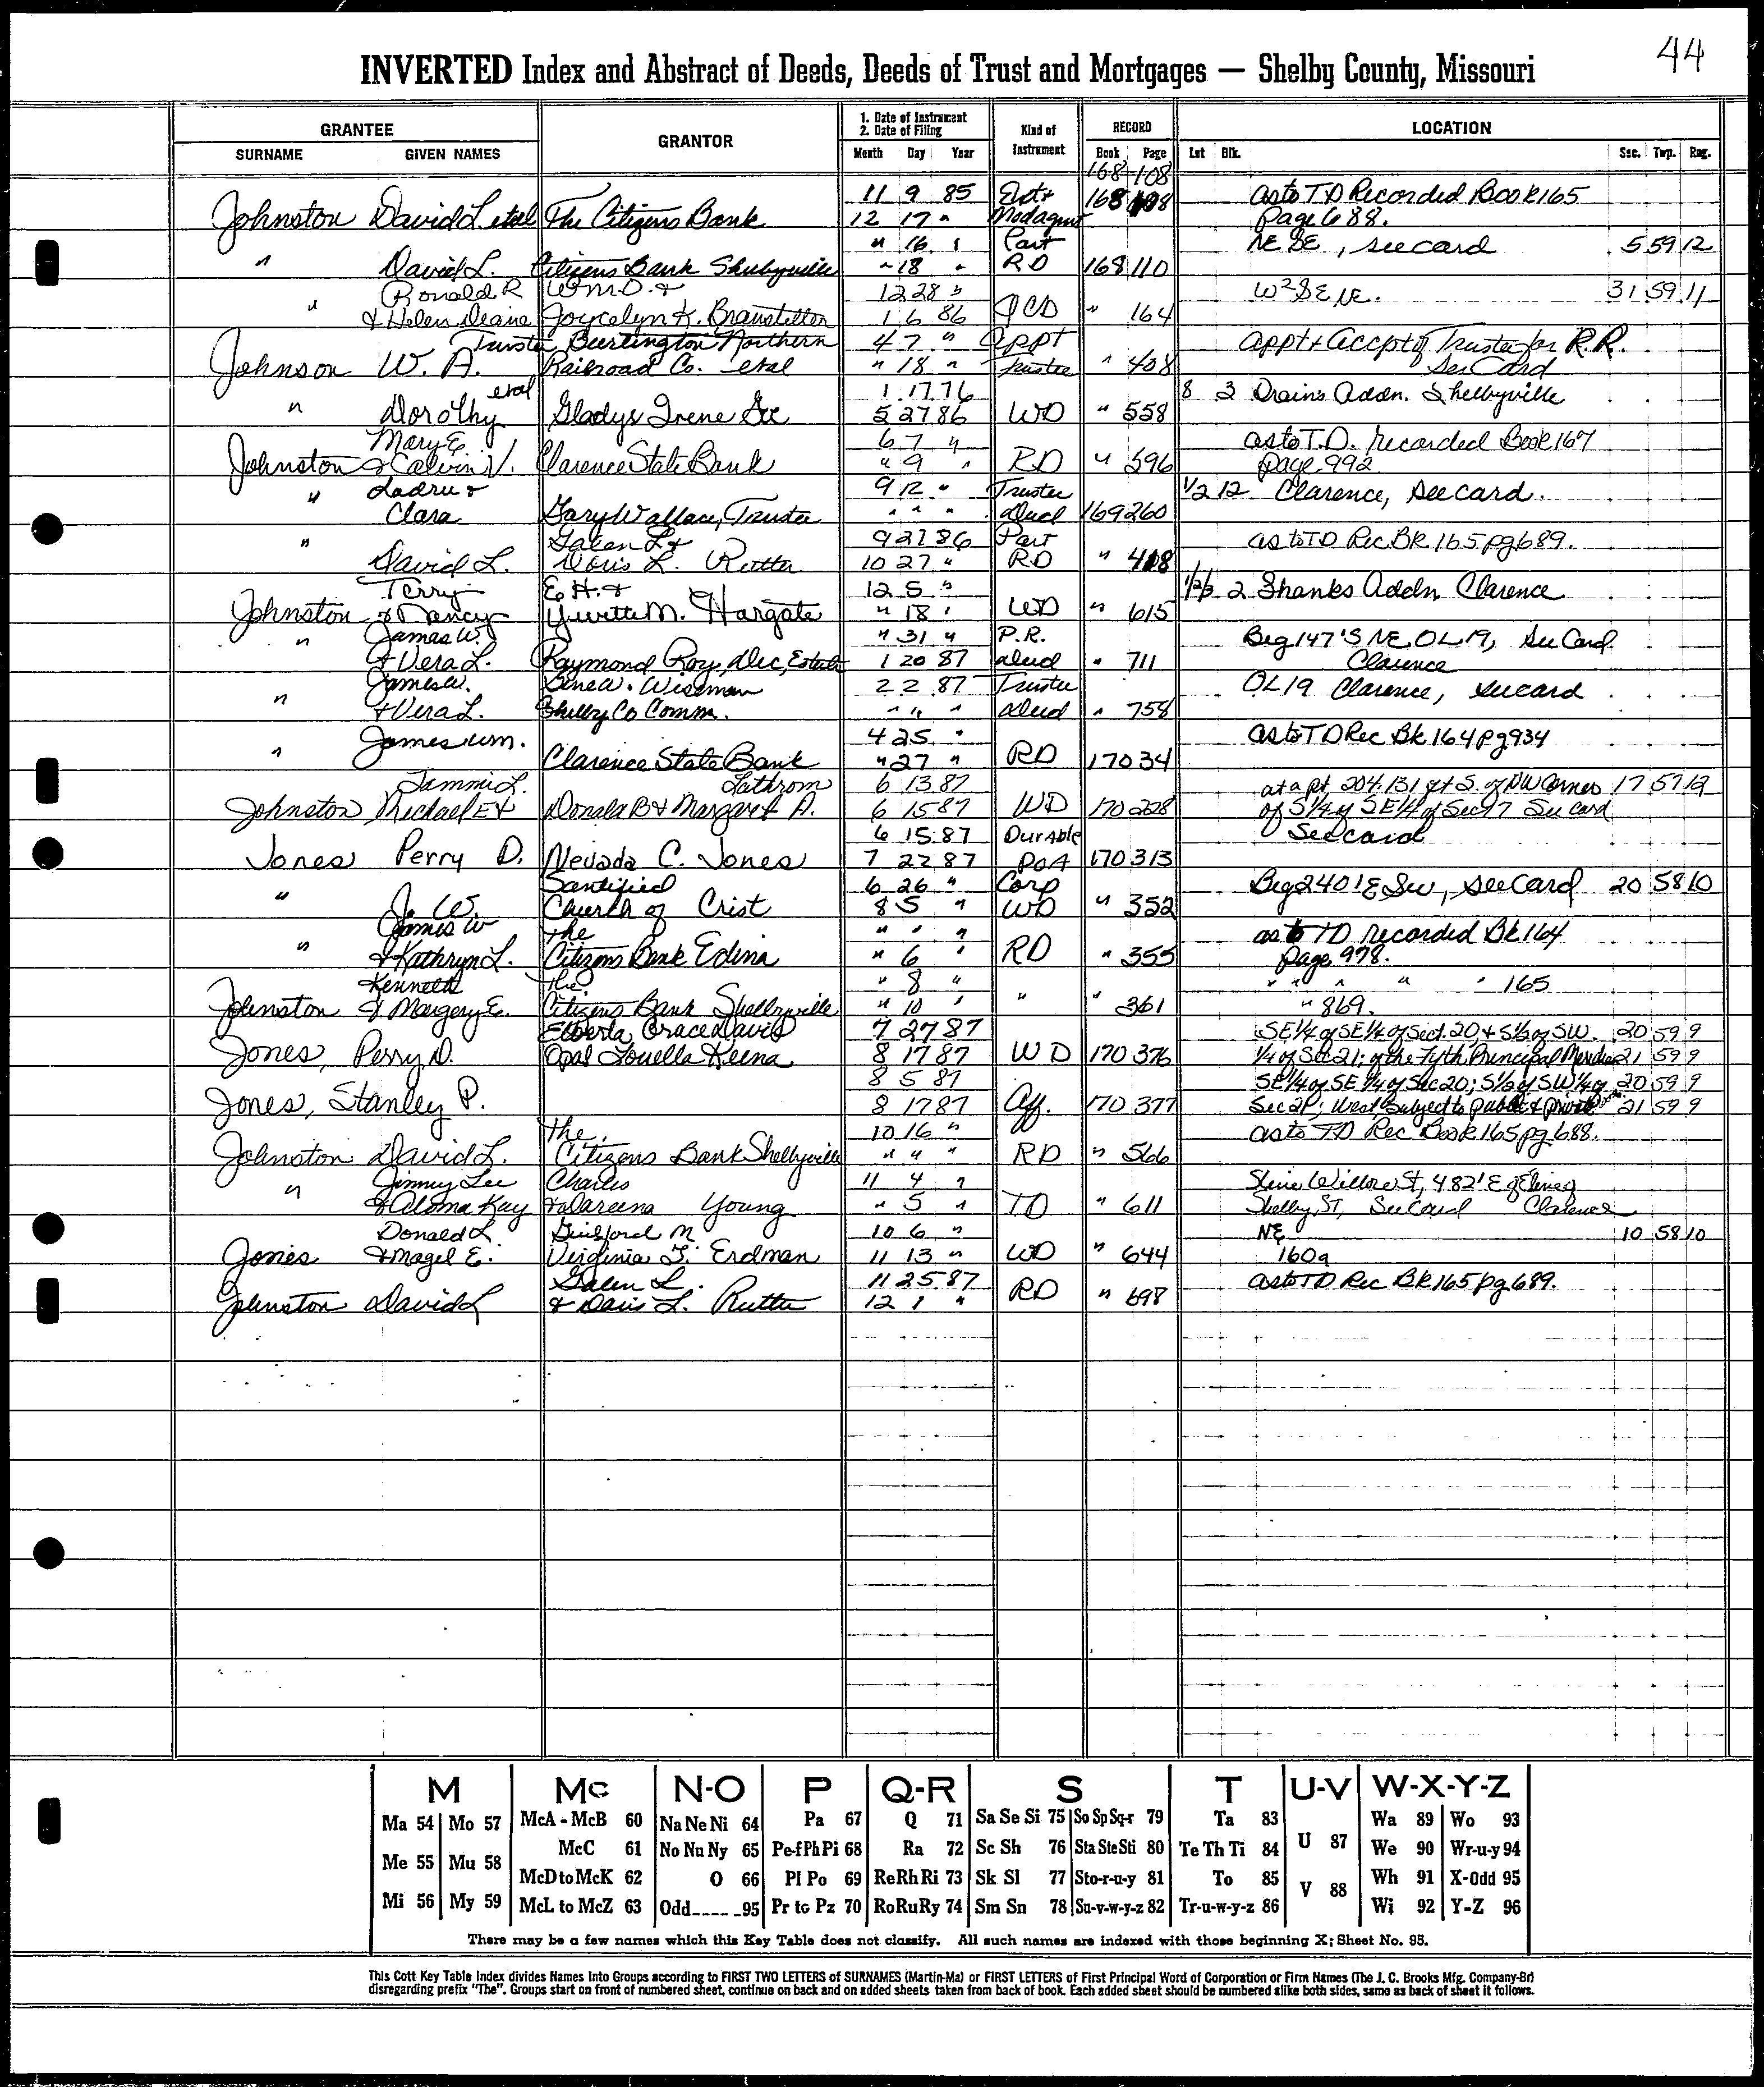 44
INVERTED Index and Abstract of Deeds, Deeds of Trust and Mortgages — Shelby County, Missouri
GRANTEE GRANTOR 1. Date of Instrument 2. Date of Filing Kind of Instrument RECORD LOCATION
SURNAME GIVEN NAMES Month Day Year Book Page Lot Blk. Sec. Twp. Rng.
168 108
11 9 85 Ext+ 168 108 as to TD Recorded Book 165
Johnston David L. etal The Citizens Bank 12 17 " Modagmt Page 688.
" 16 " Part NE SE, see card 5 59 12
" David L. Citizens Bank Shelbyville " 18 " RD 168 110
Ronald R Wm O. & 12 28 " W2 SE NE. 31 59 11
" & Helen Deane Joycelyn K. Branstetter 1 6 86 QCD " 164
Trustee Burlington Northern 4 7 " Appt Appt + Accpt of Trustee for R.R.
Johnson W. A. Railroad Co. etal " 18 " Trustee " 408 See Card
etal 1 17 76 8 3 Drains Addn. Shelbyville
" Dorothy Gladys Irene 5 27 86 WD " 558
Mary E. 6 7 " as to T.D. recorded Book 167
Johnston & Calvin V. Clarence State Bank " 9 " RD " 596 page 992
" Ladru & 9 12 " Trustee 1/2 12 Clarence, see card.
Clara Gary Wallace, Trustee " " " deed 169 260
" Galen L & 9 27 86 Part as to TD Rec BK 165 pg 689.
David L. Doris L. Rutter 10 27 " RD " 418
Terry E. H. & 12 5 " 2 Shanks Addn Clarence
Johnston & Nancy Yvette M. Hargate " 18 " WD " 615
" James W. " 31 " P.R. Beg 147' S NE OL 19, See Card
& Vera L. Raymond Roy, Dec, Estate 1 20 87 deed " 711 Clarence
James W. Gene W. Wiseman 2 2 87 Trustee OL 19 Clarence, see card
" & Vera L. Shelby Co Comm. " " " deed " 758
" James Wm. 4 25 " as to TD Rec Bk 164 pg 934
Clarence State Bank " 27 " RD 170 34
Tammi L. Lathrom 6 13 87 at a pt. 204.131 ft S. of NW Corner 17 57 12
Johnston Michael E & Donald B & Margaret A. 6 15 87 WD 170 228 of S 1/4 of SE 1/4 of Sec 17 See card
6 15 87 Durable See card
Jones Perry D. Nevada C. Jones 7 22 87 POA 170 313
" Santified 6 26 " Corp Beg 240' E Sw, see card 20 58 10
J. W. Church of Crist 8 5 " WD " 352
James W The " " " as to TD recorded Bk 164
" & Kathryn L. Citizens Bank Edina " 6 " RD " 355 page 978.
Kenneth The " 8 " " " " " " 165
Johnston & Margery E. Citizens Bank Shelbyville " 10 " " " 361 " 869.
Elberta Grace Davis 7 27 87 SE 1/4 of SE 1/4 of Sect. 20, + S 1/2 of SW. 20 59 9
Jones, Perry D. Opal Louella Keena 8 17 87 WD 170 376 1/4 of Sec 21; of the Fifth Principal Meridian 21 59 9
8 5 87 SE 1/4 of SE 1/4 of Sec 20; S 1/2 of SW 1/4 of 20 59 9
Jones, Stanley P. 8 17 87 Aff. 170 377 Sec 21; West Subject to public & private 21 59 9
The 10 16 " as to TD Rec Book 165 pg 688.
Johnston David L. Citizens Bank Shelbyville " " " RD " 566
" Jimmy Lee Charles 11 4 " Willow St, 482' E of
& Aloma Kay & Dareena Young " 5 " TD " 611 Shelby ST, See Card Clarence
Donald L. Guilford M 10 6 " NE 10 58 10
Jones & Magel E. Virginia L. Erdman 11 13 " WD " 644 160a
Galen L. 11 25 87 as to TD Rec Bk 165 pg 689.
Johnston David L & Doris L. Rutter 12 1 " RD " 698
M Mc N-O P Q-R S T U-V W-X-Y-Z
Ma 54 Mo 57 McA - McB 60 Na Ne Ni 64 Pa 67 Q 71 Sa Se Si 75 So Sp Sq-r 79 Ta 83 Wa 89 Wo 93
Me 55 Mu 58 McC 61 No Nu Ny 65 Pe-f Ph Pi 68 Ra 72 Sc Sh 76 Sta Ste Sti 80 Te Th Ti 84 U 87 We 90 Wr-u-y 94
McD to McK 62 O 66 Pl Po 69 Re Rh Ri 73 Sk Sl 77 Sto-r-u-y 81 To 85 V 88 Wh 91 X-Odd 95
Mi 56 My 59 McL to McZ 63 Odd 95 Pr to Pz 70 Ro Ru Ry 74 Sm Sn 78 Su-v-w-y-z 82 Tr-u-w-y-z 86 Wi 92 Y-Z 96
There may be a few names which this Key Table does not classify. All such names are indexed with those beginning X; Sheet No. 95.
This Cott Key Table Index divides Names into Groups according to FIRST TWO LETTERS of SURNAMES (Martin-Ma) or FIRST LETTERS of First Principal Word of Corporation or Firm Names (The J. C. Brooks Mfg. Company-Br)
disregarding prefix "The". Groups start on front of numbered sheet, continue on back and on added sheets taken from back of book. Each added sheet should be numbered alike both sides, same as back of sheet it follows.